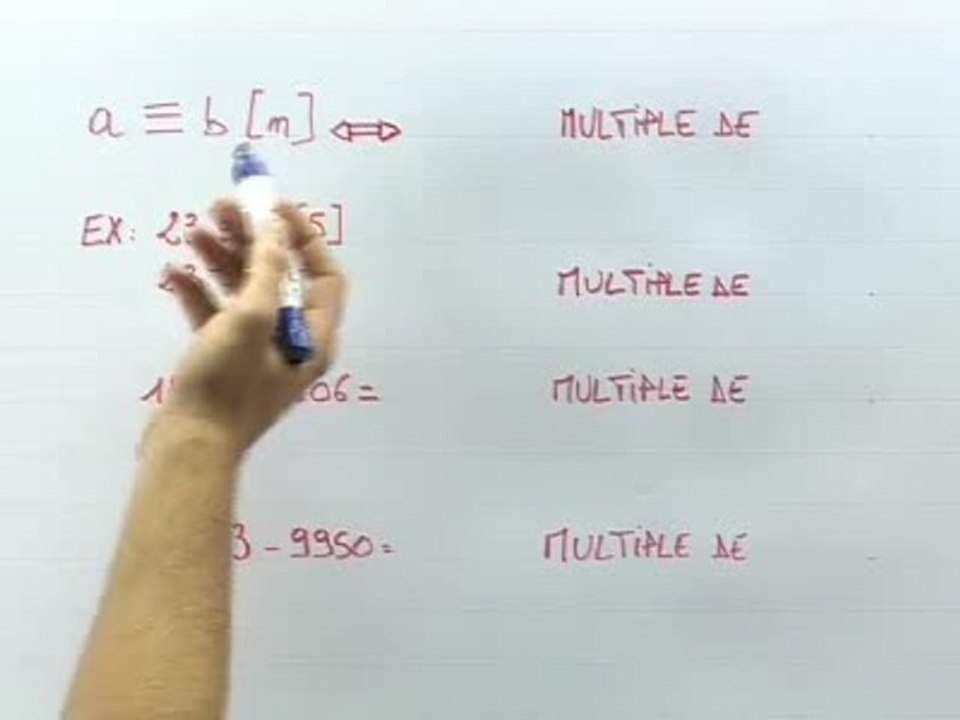 a ≡ b [n] ⇔ MULTIPLE DE
EX: 5]
MULTIPLE DE
06= MULTIPLE DE
3 - 9950= MULTIPLE DE